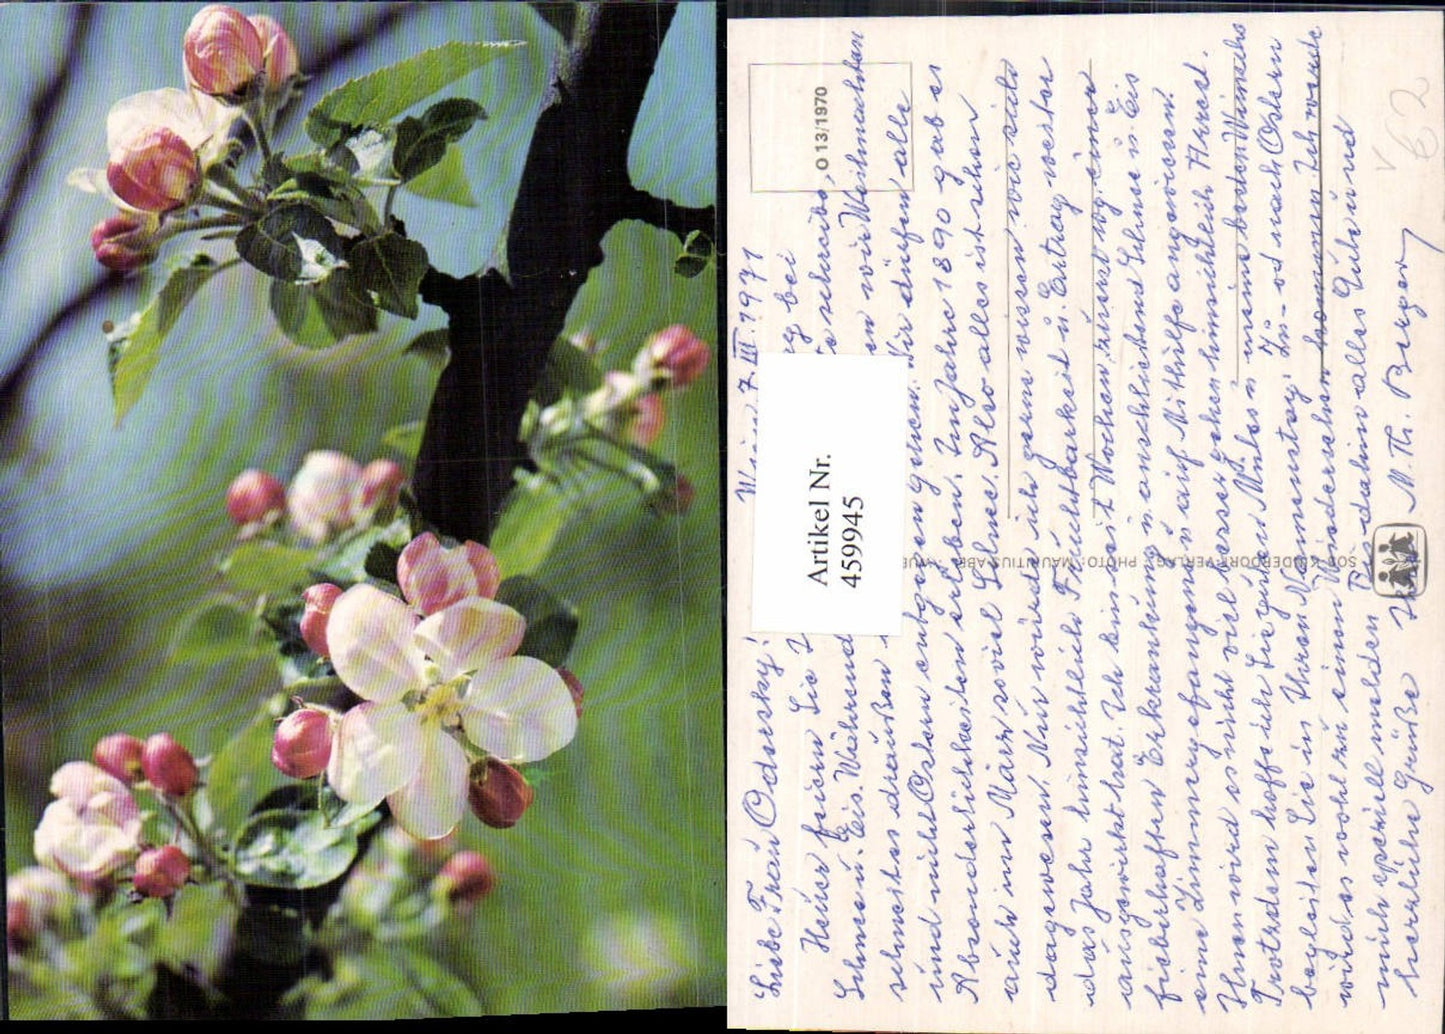 Wien 7.III.1971
Liebe Frau Odersky!
Heuer feiern Sie
bei
schreibe,
Schnee u. Eis. Während
wir Weihnachten
schneit es draußen
Wir dürfen alle
und nicht Ostern entgegen gehen.
Absonderlichkeiten erleben. Im Jahre 1890 gab es
auch im März soviel Schnee. Also alles ist schon
dagewesen. Nur würde ich gerne wissen wie sich
das Jahr hinsichtlich Fruchtbarkeit u. Ertrag weiter
ausgewirkt hat. Ich bin seit Wochen, zuerst wg. einer
fieberhaften Erkrankung u. anschließend Schnee u. Eis
eine Zimmergefangene u. auf Mithilfe angewiesen.
Ihnen wird es nicht viel besser gehen hinsichtlich Kred.
Trotzdem hoffe ich Sie guten Mutes u. meine besten Wünsche
begleiten Sie in Ihren Namenstag. Zu- od nach Ostern
wird es wohl zu einem Wiedersehen kommen. Ich werde
mich speziell melden Bis dahin alles Gute und
herzliche Grüße Ihre M. Th. Berger
O 13/1970
SOS KINDERDORF-VERLAG · PHOTO: MAURITIUS
Artikel Nr.
459945
€2